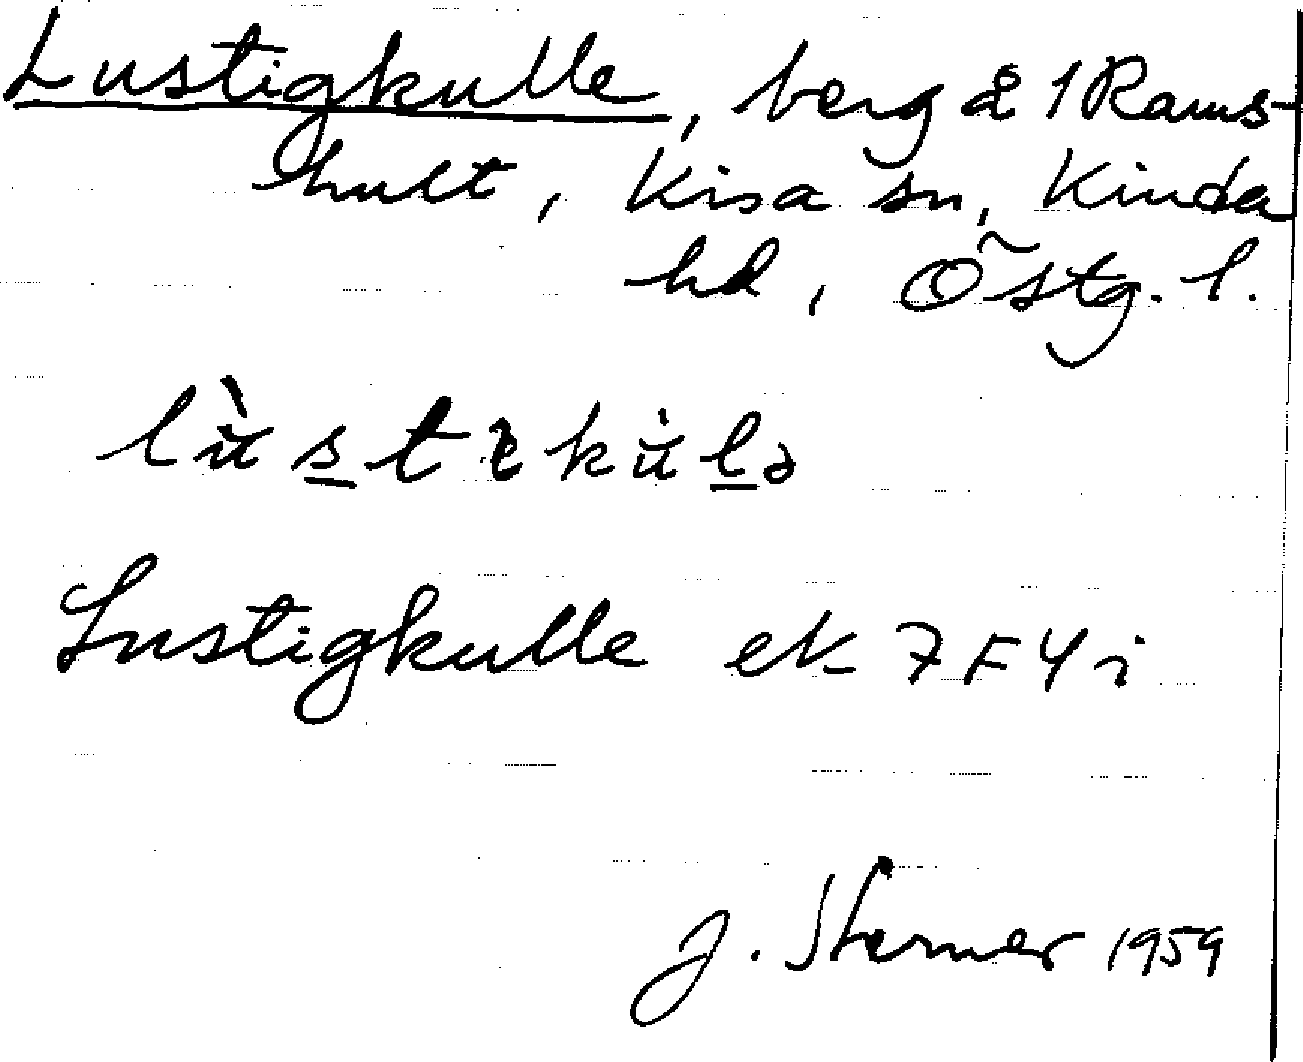 Lustigkulle, berg å 1 Rams-
hult, Kisa sn, Kinda
hd, Östg. l.
lùstɩkùlə
Lustigkulle ek 7F4i
J. Sterner 1959